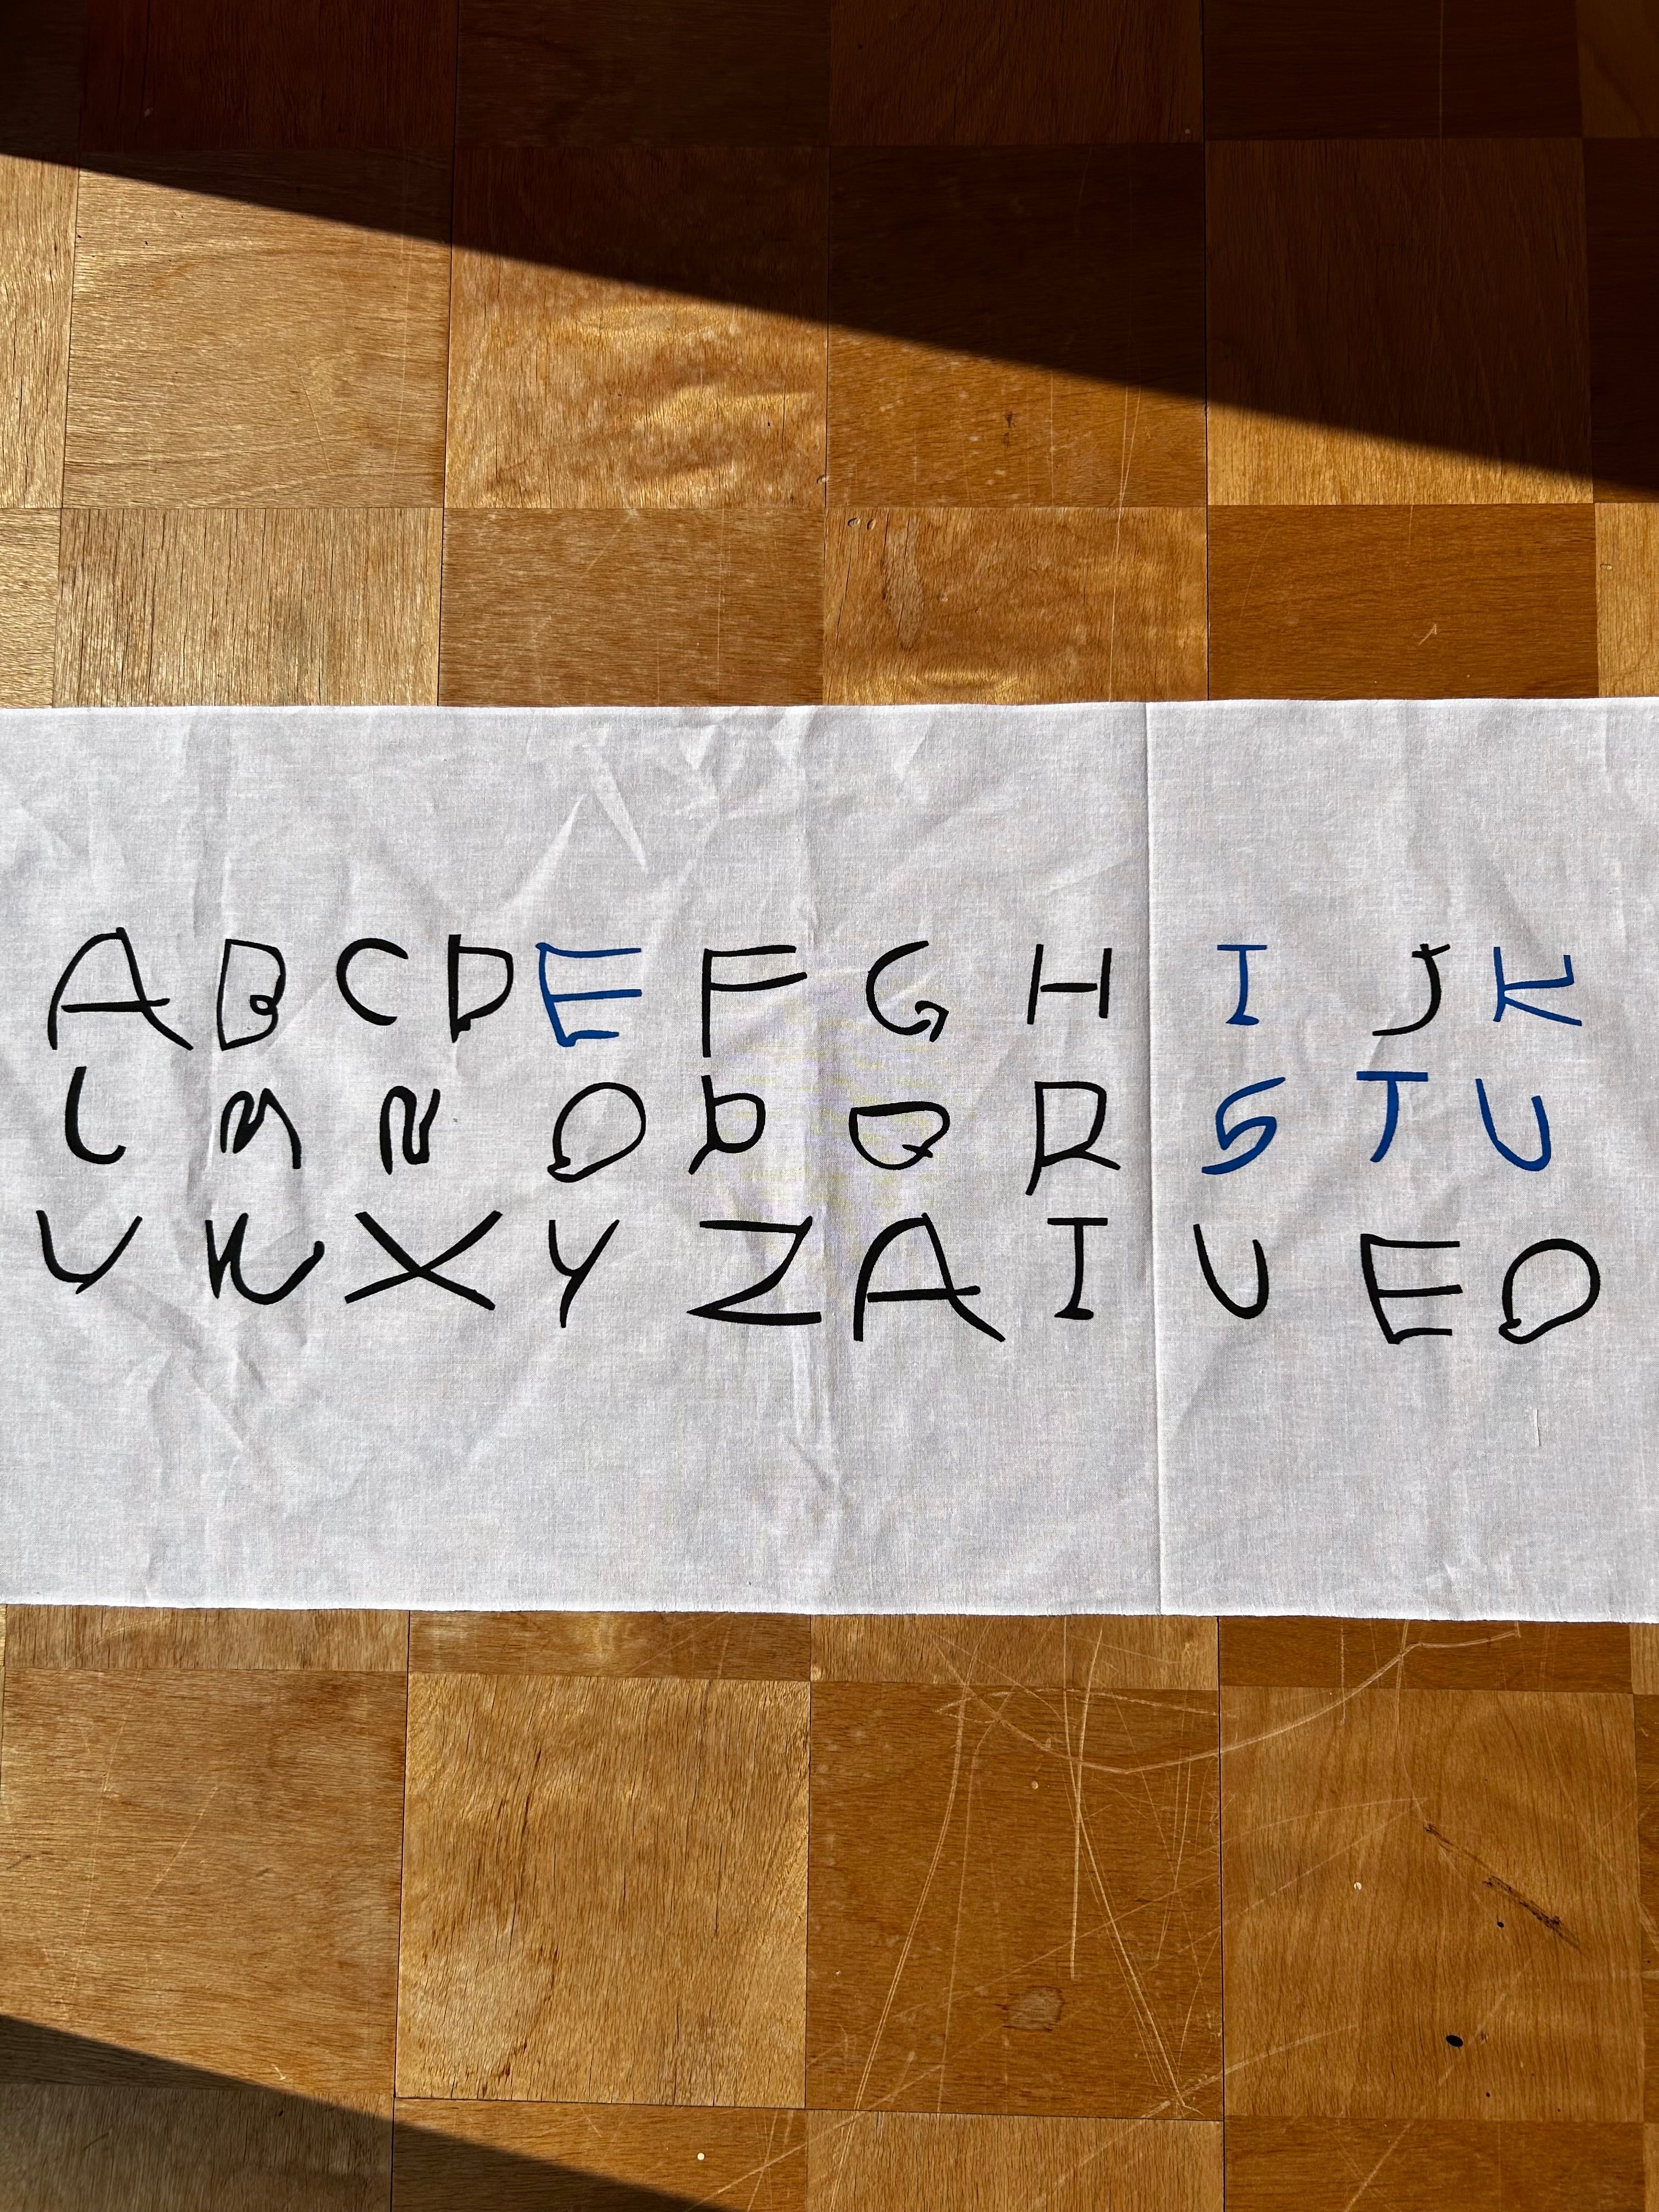 A B C D E F G H I J K
L M N O P Q R S T U
V W X Y Z A I U E O